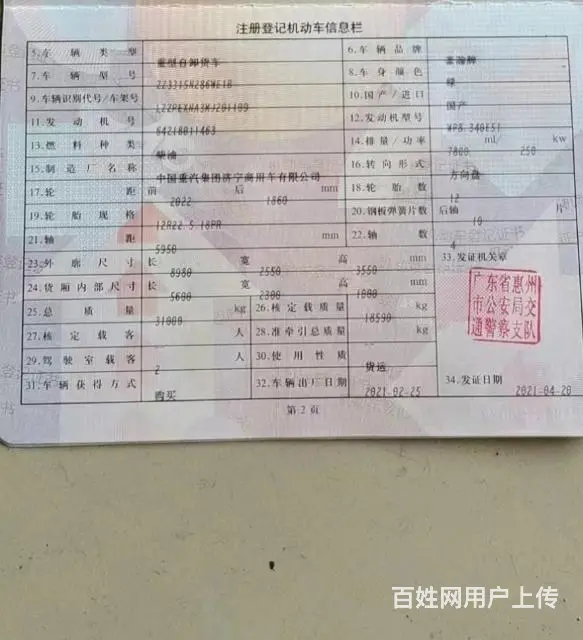 注册登记机动车信息栏
5.车辆类型 重型自卸货车 6.车辆品牌 豪瀚牌
7.车辆型号 ZZ3315N286WE1B 8.车身颜色 绿
9.车辆识别代号/车架号 10.国产/进口 国产
11.发动机号 64218011463 12.发动机型号 WP8.340E51
13.燃料种类 柴油 14.排量/功率 7800 ml/ 250 kw
15.制造厂名称 中国重汽集团济宁商用车有限公司 16.转向形式 方向盘
17.轮距 前 2022 后 1860 mm 18.轮胎数 12
19.轮胎规格 12R22.5 18PR 20.钢板弹簧片数 后轴 10 片
21.轴距 5950 mm 22.轴数 4
23.外廓尺寸 长 8980 宽 2550 高 3550 mm 33.发证机关章
24.货厢内部尺寸 长 5600 宽 2300 高 1000 mm
广东省惠州
市公安局交
通警察支队
25.总质量 31000 kg 26.核定载质量 18590 kg
27.核定载客 -- 人 28.准牵引总质量 -- kg
29.驾驶室载客 2 人 30.使用性质 货运
31.车辆获得方式 购买 32.车辆出厂日期 2021-02-25 34.发证日期 2021-04-20
第2页
百姓网用户上传